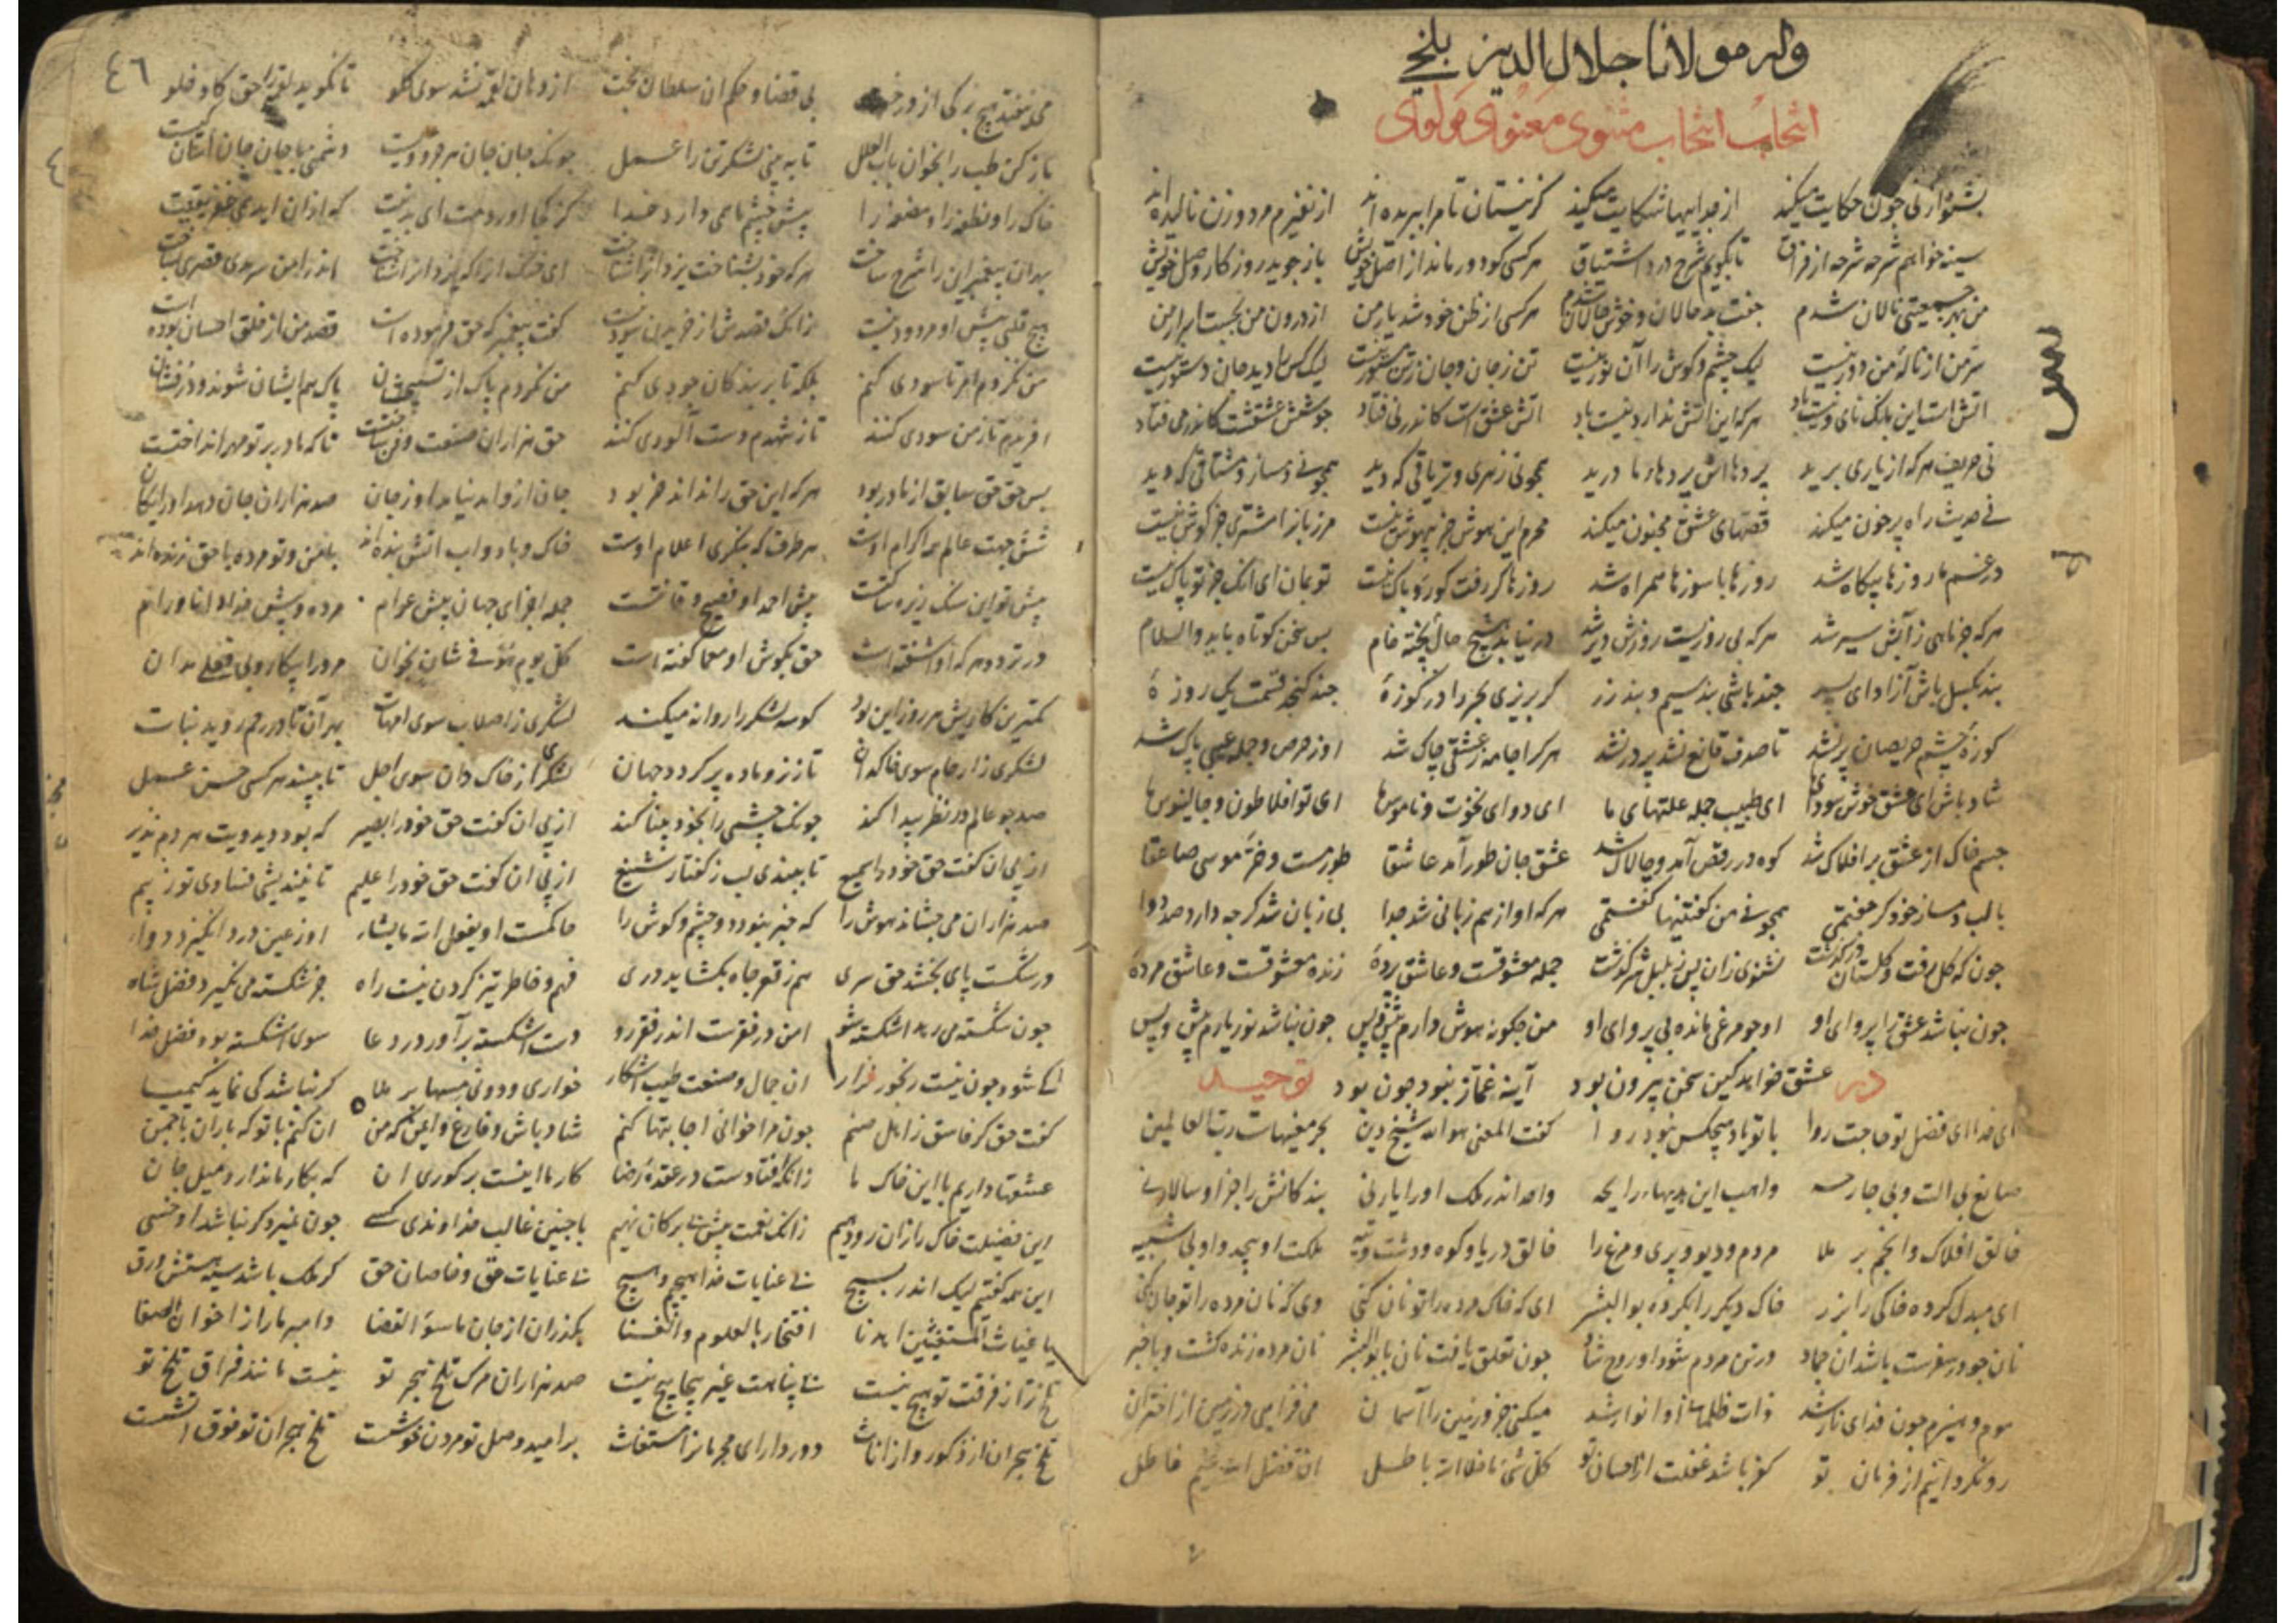 وله مولانا جلال الدین بلخی
انتخاب انتخاب مثنوی معنوی مولوی
بشنو از نی چون حکایت میکند از جداییها شکایت میکند کز نیستان تا مرا ببریده اند از نفیرم مرد و زن نالیده اند
سینه خواهم شرحه شرحه از فراق تا بگویم شرح درد اشتیاق هر کسی کو دور ماند از اصل خویش باز جوید روزکار وصل خویش
من بهر جمعیتی نالان شدم جفت بد حالان و خوش حالان شدم هر کسی از ظن خود شد یار من از درون من نجست اسرار من
سر من از ناله من دور نیست لیک چشم و کوش را آن نور نیست تن ز جان و جان ز تن مستور نیست لیک کس را دید جان دستور نیست
اتش است این بانک نای و نیست باد هر که این اتش ندارد نیست باد اتش عشق است کاندر نی فتاد جوشش عشقست کاندر می فتاد
نی حریف هر که از یاری برید پردهااش پردهاء ما درید همچو نی زهری و تریاقی که دید همچو نی دمساز و مشتاقی که دید
نی حدیث راه پر خون میکند قصهای عشق مجنون میکند محرم این هوش جز بیهوش نیست مر زبانرا مشتری جز کوش نیست
در غم ما روزها بیکاه شد روزها با سوزها همراه شد روزها کر رفت کو رو باک نیست تو بمان ای آنک جز تو پاک نیست
هر که جز ماهی ز آبش سیر شد هر که بی روزیست روزش دیر شد در نیابد هیچ حال پخته خام بس سخن کوتاه باید والسلام
بند بکسل باش آزاد ای پسر چند باشی بند سیم و بند زر کر بریزی بحر را در کوزه چند کنجد قسمت یک روزه
کوزه چشم حریصان پر نشد تا صدف قانع نشد پر در نشد هر کرا جامه ز عشقی چاک شد او ز حرص و جمله عیبی پاک شد
شاد باش ای عشق خوش سودای ما ای طبیب جمله علتهای ما ای دوای نخوت و ناموس ما ای تو افلاطون و جالینوس ما
جسم خاک از عشق بر افلاک شد کوه در رقص آمد و چالاک شد عشق جان طور آمد عاشقا طور مست و خر موسی صاعقا
با لب دمساز خود کر جفتمی همچو نی من کفتنیها کفتمی هر که او از هم زبانی شد جدا بی زبان شد کرچه دارد صد نوا
چون که کل رفت و کلستان در کذشت نشنوی زان پس ز بلبل سرکذشت جمله معشوقست و عاشق پرده زنده معشوقست و عاشق مرده
چون نباشد عشق را پروای او او چو مرغی ماند بی پر وای او من چکونه هوش دارم پیش و پس چون نباشد نور یارم پیش و پس
عشق خواهد کین سخن بیرون بود آینه غماز نبود چون بود
در توحید
ای خدا ای فضل تو حاجت روا با تو یاد هیچکس نبود روا کفت المعنی هو الله شیخ دین بحر معنیهاست رب العالمین
صانع بی الت و بی جارحه واهب این هدیهاء رایحه واحد اندر ملک او را یار نی بندکانش را جز او سالار نی
خالق افلاک و انجم بر علا مردم و دیو و پری و مرغ را خالق دریا و کوه و دشت و تیه ملکت او بیحد و او بی شبیه
ای مبدل کرده خاکی را بزر خاک دیکر را بکرده بوالبشر ای که خاک مرده را تو نان کنی وی که نان مرده را تو جان کنی
نان چو در سفرست باشد ان جماد در تن مردم شود او روح شاد چون تعلق یافت نان با بوالبشر نان مرده زنده کشت و با خبر
موم و هیزم چون فدای نار شد ذات ظلمانی او انوار شد میکنی جزو زمین را آسمان می فزایی در زمین از اختران
رو نکردانیم از فرمان تو کفر باشد غفلت از احسان تو کل شی ما خلا الله باطل ان فضل الله غیم هاطل
٤٦
می نیفتد هیچ برکی از درخت بی قضا و حکم ان سلطان بخت از دهان لقمه نشد سوی کلو تا نکوید لقمه را حق کادخلو
باز کن طب را بخوان باب العلل تا به بینی لشکر تن را عمل چونک جان جان هر چیزی ویست دشمنی با جان جان آسان کیست
خاک را و نطفه را و مضغه را پیش چشم ما همی دارد خدا کز کجا اوردمت ای بد نیت که از ان ایدت همی خفریقیت
بهر آن پیغمبر این را شرح ساخت هر که خود بشناخت یزدان را شناخت ای خنک انرا که یزدان را شناخت اندر امن سرمدی قصری بساخت
هیچ قلبی پیش او مردود نیست زانک قصدش از خریدن سود نیست کفت پیغمبر که حق فرموده است قصد من از خلق احسان بوده است
من نکردم امر تا سودی کنم بلکه تا بر بندکان جودی کنم من نکردم پاک از تسبیحشان پاک هم ایشان شوند و درفشان
افریدم تا ز من سودی کنند تا ز شهدم دست آلودی کنند حق هزاران صنعت و فن ساختست تا که مادر بر تو مهر انداختست
پس حق حق سابق از مادر بود هر که این حق را نداند خر بود جان ازو امد نیامد او ز جان صد هزاران جان دهد او رایکان
شش جهت عالم همه اکرام اوست هر طرف که بنکری اعلام اوست خاک و باد و اب و اتش بنده اند با من و تو مرده با حق زنده اند
پیش تو این سنک ریزه ساکتست پیش احمد او فصیح و قانتست جمله اجزای جهان پیش عوام مرده و پیش خدا دانا و رام
در تردد هر که او اشفته است حق بکوش او معما کفته است کل یوم هو فی شان بخوان مر ورا بیکار و بی فعلی مدان
کمترین کاریش هر روز این بود کو سه لشکر را روانه میکند لشکری ز اصلاب سوی امهات بهر آن تا در رحم روید نبات
لشکری ز ارحام سوی خاکدان تا ز نر و ماده پر کردد جهان لشکری از خاک دان سوی اجل تا ببیند هر کسی حسن عمل
صد چو عالم در نظر پیدا کند چونک چشمی را بخود بینا کند از پی ان کفت حق خود را بصیر که بود دید ویت هر دم نذیر
از پی ان کفت حق خود را سمیع تا ببندی لب ز کفتار شنیع از پی ان کفت حق خود را علیم تا نیندیشی فسادی تو ز بیم
صد هزاران می چشاند هوش را که خبر نبود دو چشم و کوش را حاکمست او یفعل الله ما یشاء او ز عین درد انکیزد دوا
در شکست پای بخشد حق سری هم ز قعر چاه بکشاید دری فهم و خاطر تیز کردن نیست راه جز شکسته می نکیرد فضل شاه
چون شکسته می رهد اشکسته شو امن در فقرست اندر فقر رو دست اشکسته برآور در دعا سوی اشکسته بود فضل خدا
کی شود چون نیست رنجور نزار ان جمال و صنعت طب اشکار خواری و دونی مسها بر ملا کر نباشد کی نماید کیمیا
کفت حق کر فاسق ز اهل صنم چون مرا خوانی اجابتها کنم شاد باش و فارغ و ایمن که من ان کنم با تو که باران با چمن
عشقها داریم با این خاک ما زانکه افتادست در عقده رضا کار ما اینست بر کوری ان که بکار ما ندارد میل جان
این فضیلت خاک را زان رو دهیم زانک نعمت پیش بی برکان نهیم با چنین غالب خداوندی کسی چون نمیرد کر نباشد او خسی
این همه کفتیم لیک اندر بسیچ بی عنایات خدا هیچیم و هیچ بی عنایات حق و خاصان حق کر ملک باشد سیه هستش ورق
یا غیاث المستغیثین اهدنا لا افتخار بالعلوم والغنا بکذران از جان ما سوء القضا وا مبر ما را ز اخوان الصفا
تلخ تر از فرقت تو هیچ نیست بی پناهت غیر پیچا پیچ نیست صد هزاران مرک تلخ هجر تو نیست مانند فراق تلخ تو
تلخ هجران از ذکور و از اناث دور دار ای مجرمانرا مستغاث بر امید وصل تو مردن خوشست تلخ هجران تو فوق اتشست